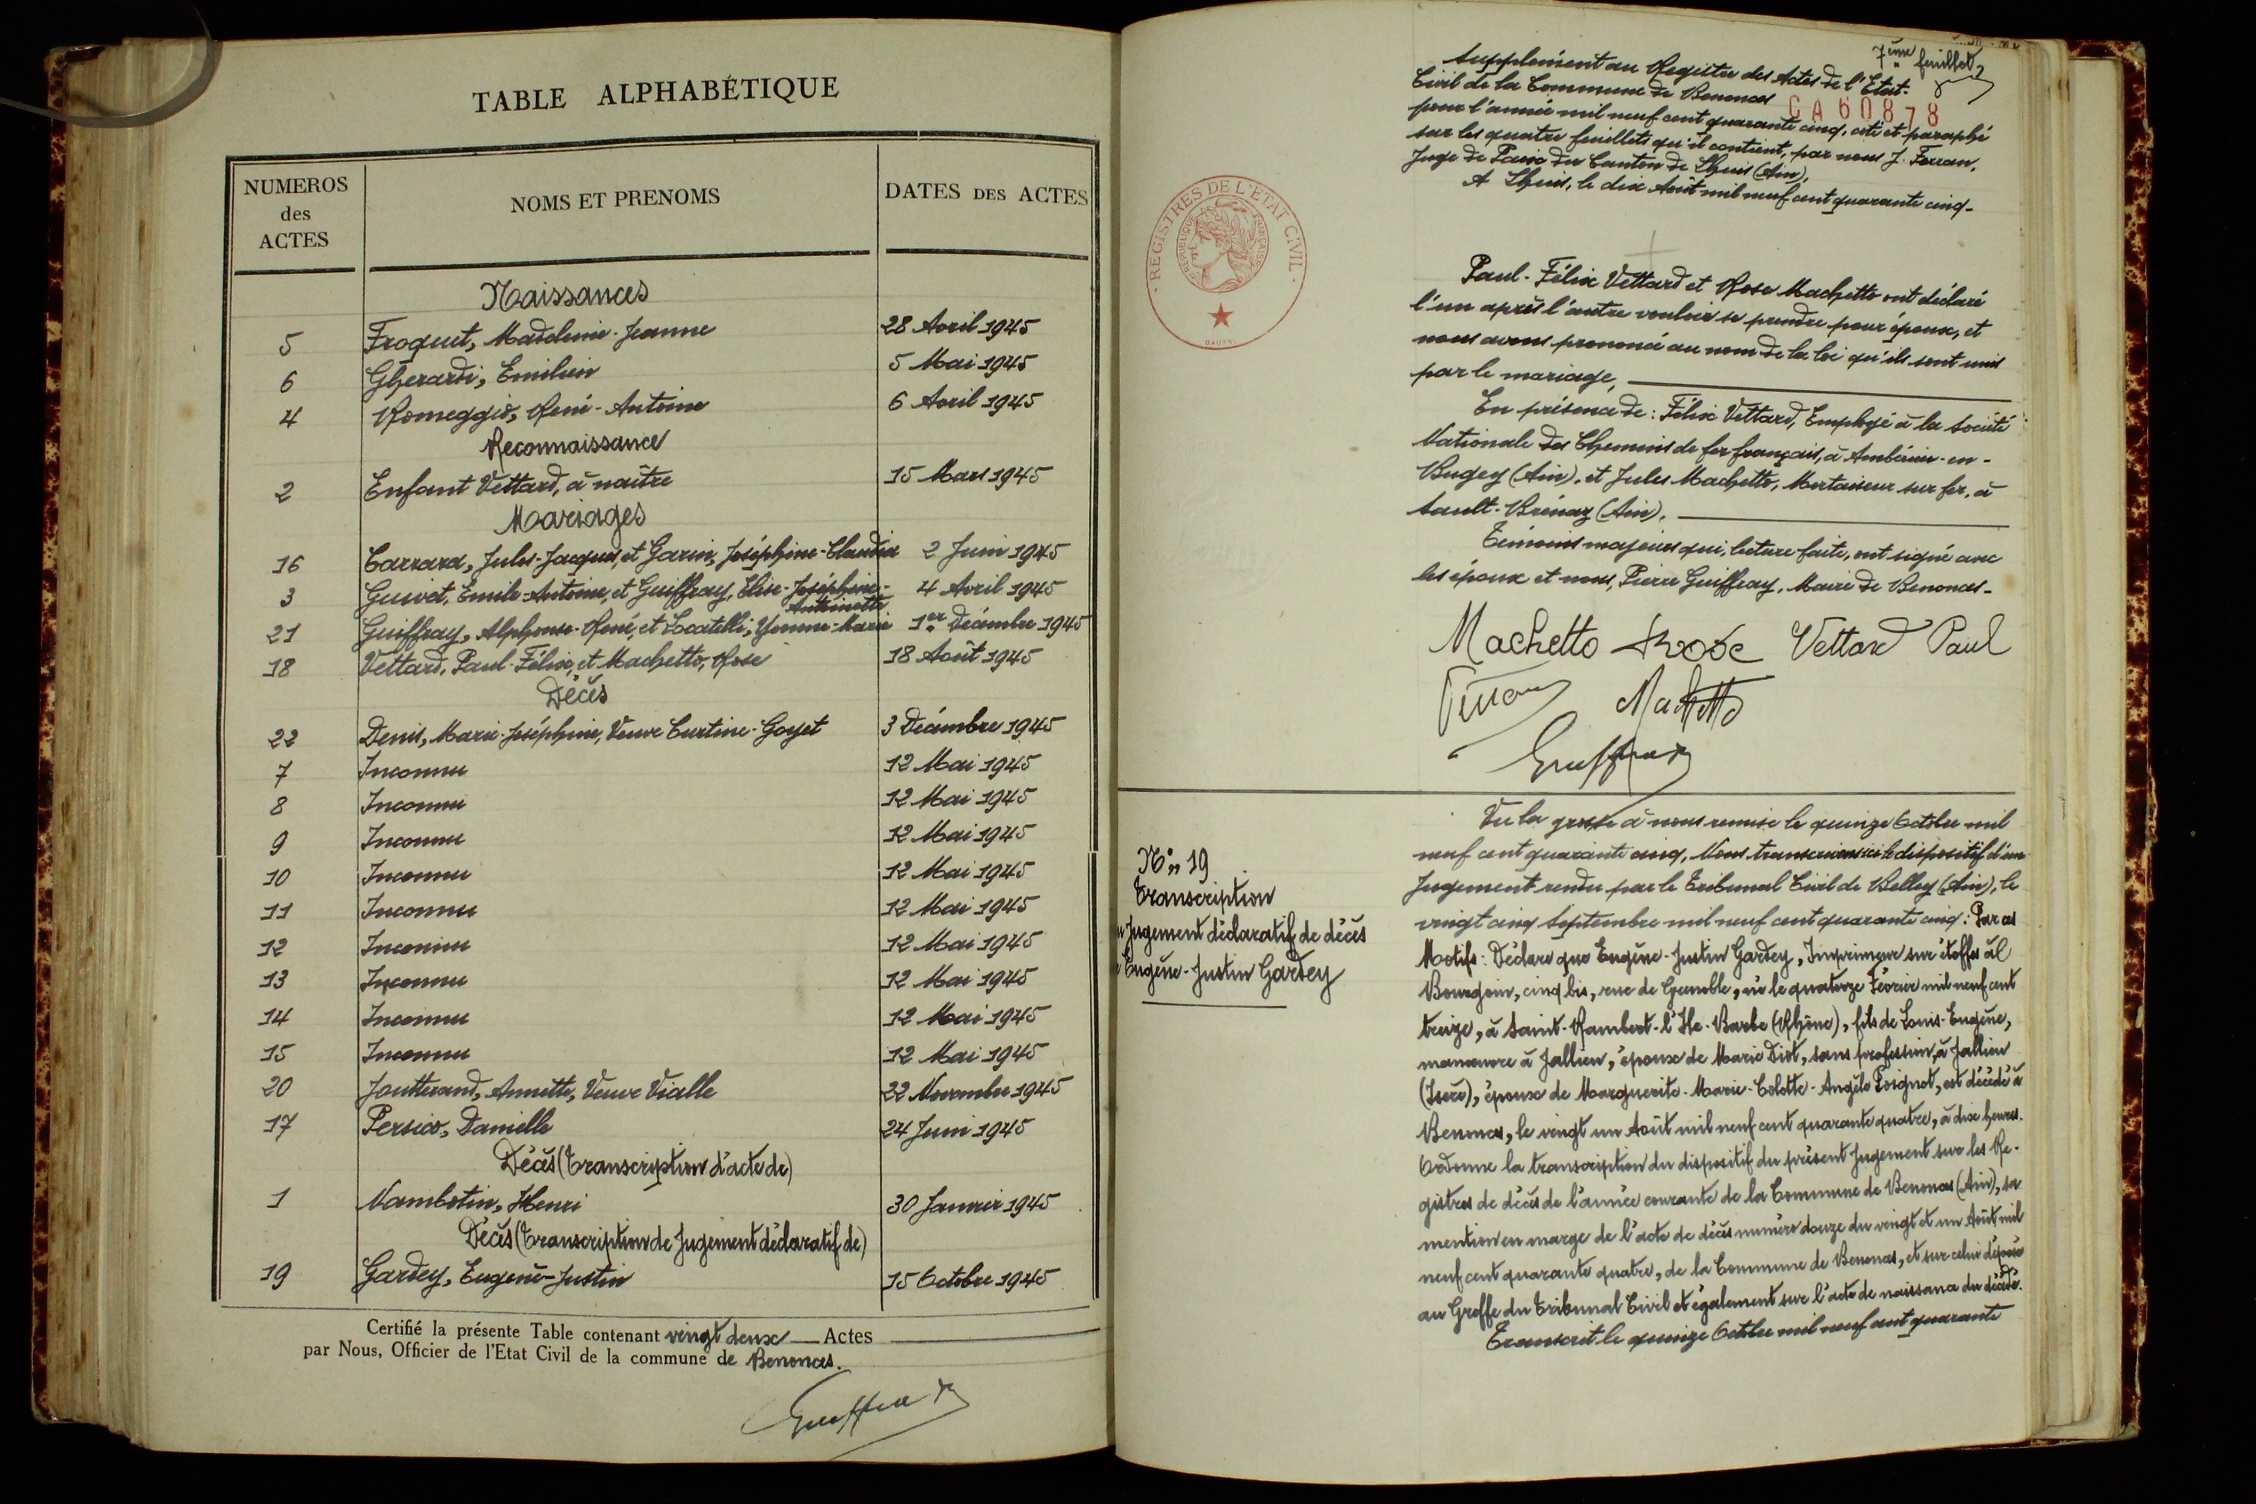 TABLE ALPHABÉTIQUE
NUMEROS des ACTES
NOMS ET PRENOMS
DATES DES ACTES
Naissances
5 Froquet, Madeleine-Jeanne 28 Avril 1945
6 Gherardi, Emilien 5 Mai 1945
4 Romeggio, René-Antoine 6 Avril 1945
Reconnaissance
2 Enfant Vettard, à naître 15 Mars 1945
Mariages
16 Carrara, Jules-Jacques, et Garin, Joséphine-Claudia 2 Juin 1945
3 Guivet, Emile-Antoine, et Guiffray, Elise-Joséphine-Antoinette 4 Avril 1945
21 Guiffray, Alphonse-René, et Locatelli, Yvonne-Marie 1er Décembre 1945
18 Vettard, Paul-Félix, et Machetto, Rose 18 Août 1945
Décès
22 Denis, Marie-Joséphine, Veuve Curtine-Goyet 3 Décembre 1945
7 Inconnu 12 Mai 1945
8 Inconnu 12 Mai 1945
9 Inconnu 12 Mai 1945
10 Inconnu 12 Mai 1945
11 Inconnu 12 Mai 1945
12 Inconnu 12 Mai 1945
13 Inconnu 12 Mai 1945
14 Inconnu 12 Mai 1945
15 Inconnu 12 Mai 1945
20 Joutterand, Annette, Veuve Vialle 22 Novembre 1945
17 Persico, Danielle 24 Juin 1945
Décès (Transcription d'acte de)
1 Nambotin, Henri 30 Janvier 1945
Décès (Transcription de Jugement déclaratif de)
19 Gardey, Eugène-Justin 15 Octobre 1945
Certifié la présente Table contenant vingt deux Actes
par Nous, Officier de l'Etat Civil de la commune de Benonces.
Guiffray
7ème feuillet
Supplément au Registre des Actes de l'Etat-
Civil de la Commune de Benonces
CA 60878
pour l'année mil neuf cent quarante cinq, coté et paraphé
sur les quatre feuillets qu'il contient, par nous J. Ferran,
Juge de Paix du Canton de Lhuis (Ain),
A Lhuis, le dix Août mil neuf cent quarante cinq-
REGISTRES DE L'ETAT CIVIL
REPUBLIQUE FRANÇAISE
Paul-Félix Vettard et Rose Machetto ont déclaré
l'un après l'autre vouloir se prendre pour époux, et
nous avons prononcé au nom de la loi qu'ils sont unis
par le mariage,
En présence de: Félix Vettard, Employé à la Société
Nationale des Chemins de fer français, à Ambérieu-en-
Bugey (Ain), et Jules Machetto, Mortaiseur sur fer, à
Sault-Brénaz (Ain),
Témoins majeurs qui, lecture faite, ont signé avec
les époux et nous, Pierre Guiffray, Maire de Benonces-
Machetto Rose Vettard Paul
Machetto
Guiffray
N° 19
Transcription
Jugement déclaratif de décès
Eugène-Justin Gardey
Vu la grosse à nous remise le quinze Octobre mil
neuf cent quarante cinq, Nous transcrivons ici le dispositif d'un
Jugement rendu par le Tribunal Civil de Belley (Ain), le
vingt cinq Septembre mil neuf cent quarante cinq: Par ces
Motifs: Déclare que Eugène-Justin Gardey, Imprimeur sur étoffes à
Bourgoin, cinq bis, rue de Grenoble, né le quatorze Février mil neuf cent
treize, à Saint-Rambert-l'Ile-Barbe (Rhône), fils de Louis-Eugène,
manœuvre à Jallieu, époux de Marie Diot, sans profession, à Jallieu
(Isère), époux de Marguerite-Marie-Colette-Angèle Poignot, est décédé à
Benonces, le vingt un Août mil neuf cent quarante quatre, à dix heures.
Ordonne la transcription du dispositif du présent Jugement sur les Re-
gistres de décès de l'année courante de la Commune de Benonces (Ain), sa
mention en marge de l'acte de décès numéro douze du vingt et un Août mil
neuf cent quarante quatre, de la Commune de Benonces, et sur celui déposé
au Greffe du Tribunal Civil et également sur l'acte de naissance du décédé.
Transcrit le quinze Octobre mil neuf cent quarante